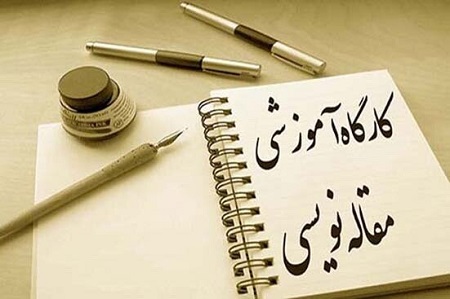 کارگاه آموزشی
مقاله نویسی